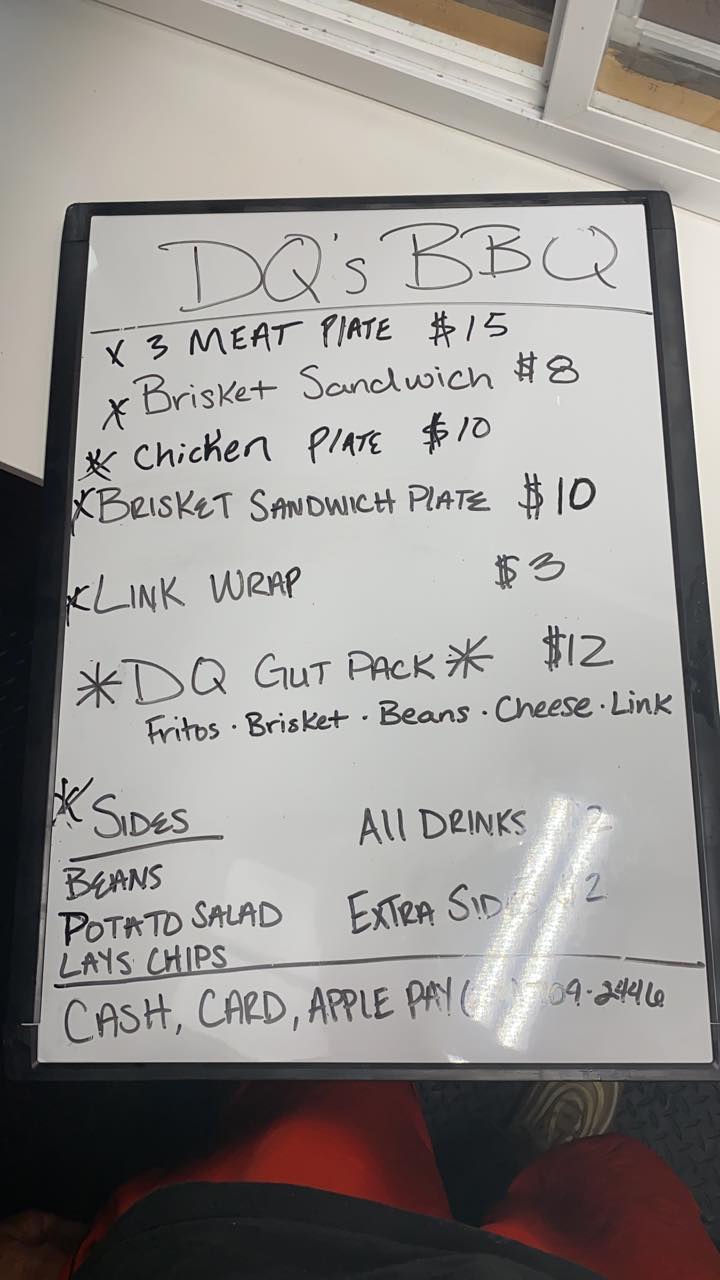 DQ's BBQ
x 3 MEAT PLATE $15
x Brisket Sandwich $8
* Chicken PLATE $10
x BRISKET SANDWICH PLATE $10
x LINK WRAP $3
* DQ GUT PACK * $12
Fritos · Brisket · Beans · Cheese · Link
* SIDES
All DRINKS 2
BEANS
POTATO SALAD
EXTRA 2
LAYS CHIPS
CASH, CARD, APPLE PAY 09-2446